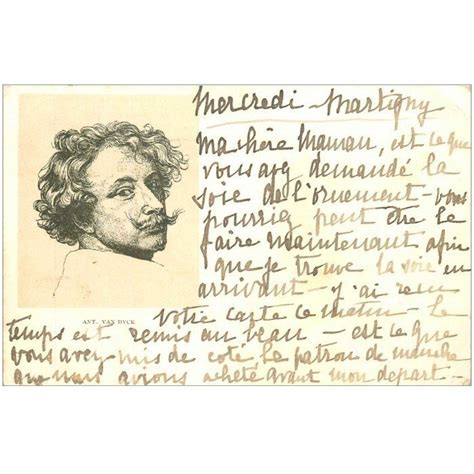 Mercredi - Martigny
ma chère Maman, est ce que
vous avez demandé la
soie de l'ornement - vous
pourriez peut être le
faire maintenant afin
que je trouve la soie en
arrivant - j'ai reçu
votre carte ce matin - le
ANT. VAN DYCK
temps est remis au beau - est ce que
vous avez mis de cote, le patron de manche
que nous avions acheté avant mon depart -